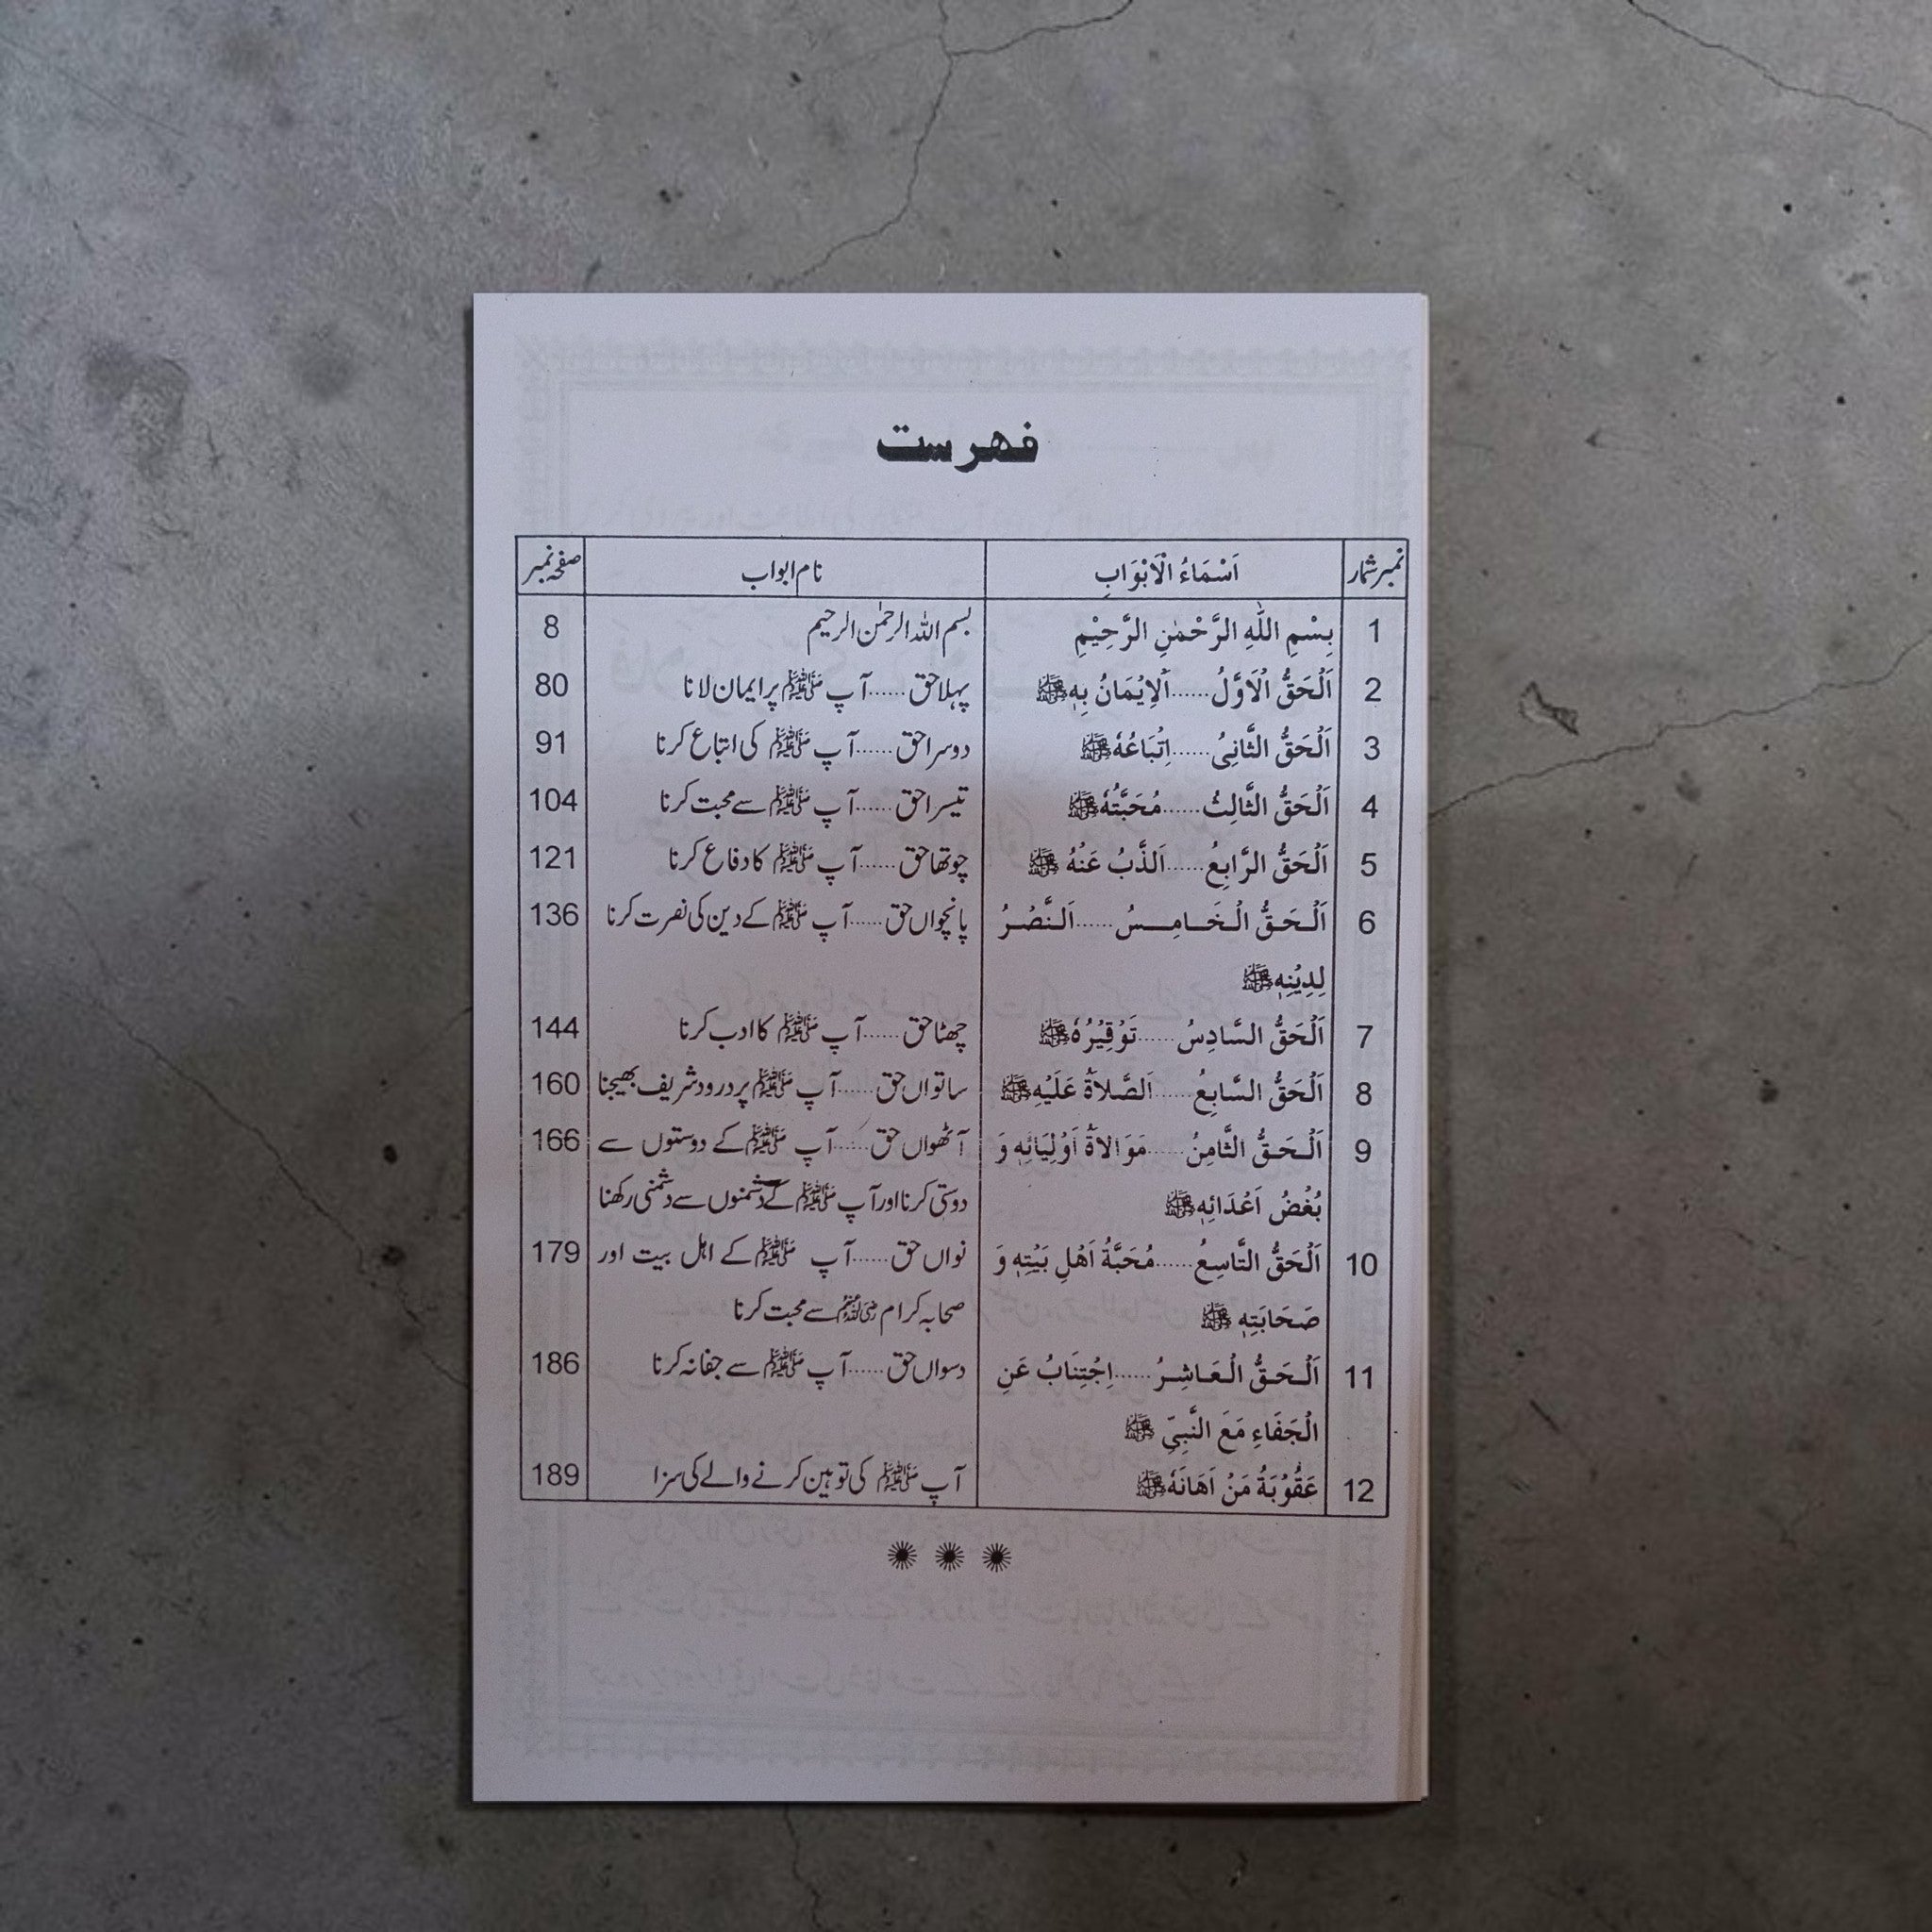 فهرست
نمبر شمار اَسْمَاءُ الْاَبْوَابِ نام ابواب صفحہ نمبر
1 بِسْمِ اللّٰهِ الرَّحْمٰنِ الرَّحِيْمِ بسم اللہ الرحمٰن الرحیم 8
2 اَلْحَقُّ الْاَوَّلُ......اَلْاِيْمَانُ بِهٖ ﷺ پہلا حق......آپ ﷺ پر ایمان لانا 80
3 اَلْحَقُّ الثَّانِىُ......اِتِّبَاعُهٗ ﷺ دوسرا حق......آپ ﷺ کی اتباع کرنا 91
4 اَلْحَقُّ الثَّالِثُ......مُحَبَّتُهٗ ﷺ تیسرا حق......آپ ﷺ سے محبت کرنا 104
5 اَلْحَقُّ الرَّابِعُ......اَلذَّبُ عَنْهُ ﷺ چوتھا حق......آپ ﷺ کا دفاع کرنا 121
6 اَلْحَقُّ الْخَامِسُ......اَلنَّصْرُ پانچواں حق......آپ ﷺ کے دین کی نصرت کرنا 136
لِدِيْنِهٖ ﷺ
7 اَلْحَقُّ السَّادِسُ......تَوْقِيْرُهٗ ﷺ چھٹا حق......آپ ﷺ کا ادب کرنا 144
8 اَلْحَقُّ السَّابِعُ......اَلصَّلاةُ عَلَيْهِ ﷺ ساتواں حق......آپ ﷺ پر درود شریف بھیجنا 160
9 اَلْحَقُّ الثَّامِنُ......مَوَالاةُ اَوْلِيَائِهٖ وَ آٹھواں حق......آپ ﷺ کے دوستوں سے 166
بُغْضُ اَعْدَائِهٖ ﷺ دوستی کرنا اور آپ ﷺ کے دشمنوں سے دشمنی رکھنا
10 اَلْحَقُّ التَّاسِعُ......مُحَبَّةُ اَهْلِ بَيْتِهٖ وَ نواں حق......آپ ﷺ کے اہل بیت اور 179
صَحَابَتِهٖ ﷺ صحابہ کرام رضی اللہ عنہم سے محبت کرنا
11 اَلْحَقُّ الْعَاشِرُ......اِجْتِنَابُ عَنِ دسواں حق......آپ ﷺ سے جفا نہ کرنا 186
الْجَفَاءِ مَعَ النَّبِىِّ ﷺ
12 عَقُوْبَةُ مَنْ اَهَانَهٗ ﷺ آپ ﷺ کی توہین کرنے والے کی سزا 189